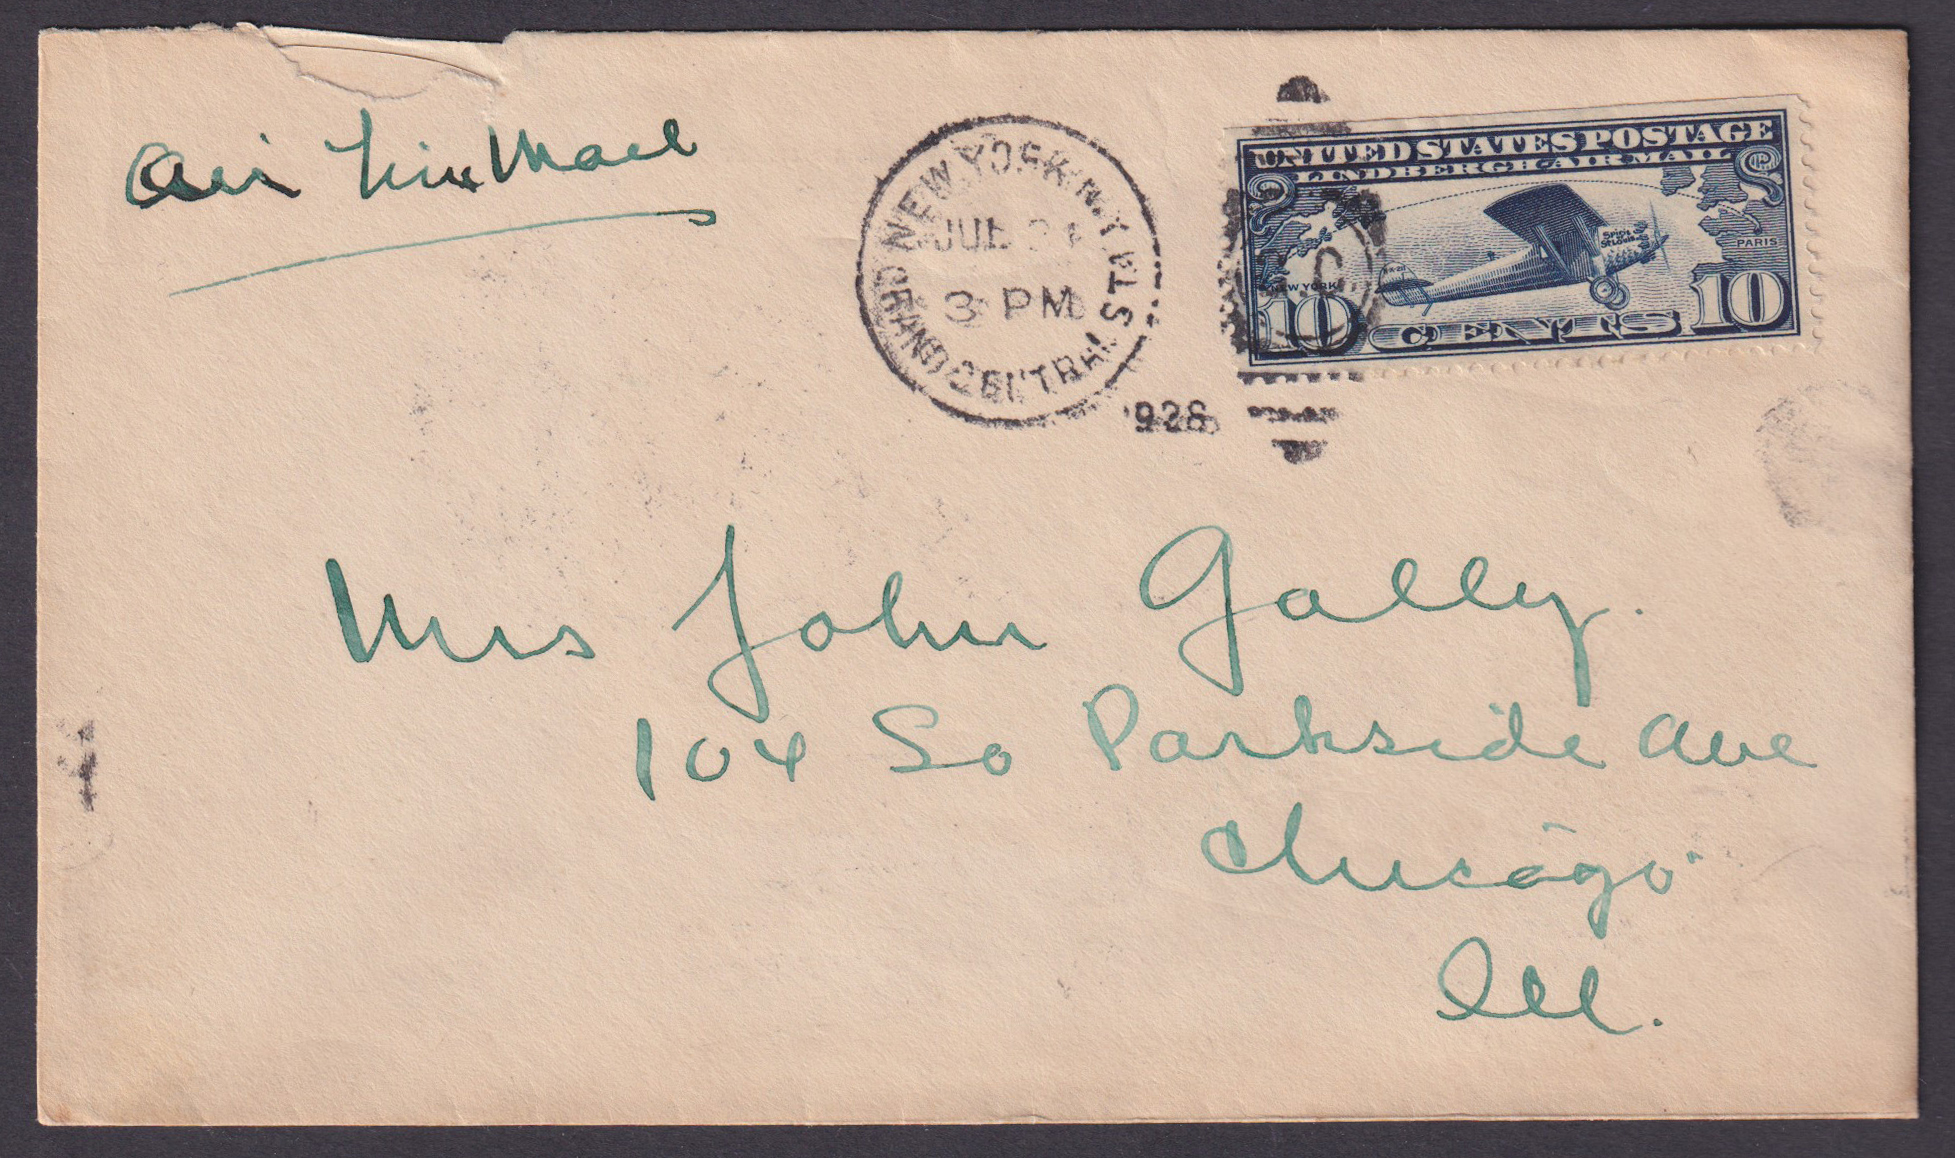 Air Mail
NEW YORK, N.Y.
GRAND CENTRAL STA.
JUL
3 PM
1928
UNITED STATES POSTAGE
LINDBERGH AIR MAIL
SPIRIT
ST. LOUIS
PARIS
NEW YORK
10 CENTS 10
Mrs John Gally.
104 So Parkside Ave
Chicago
Ill.